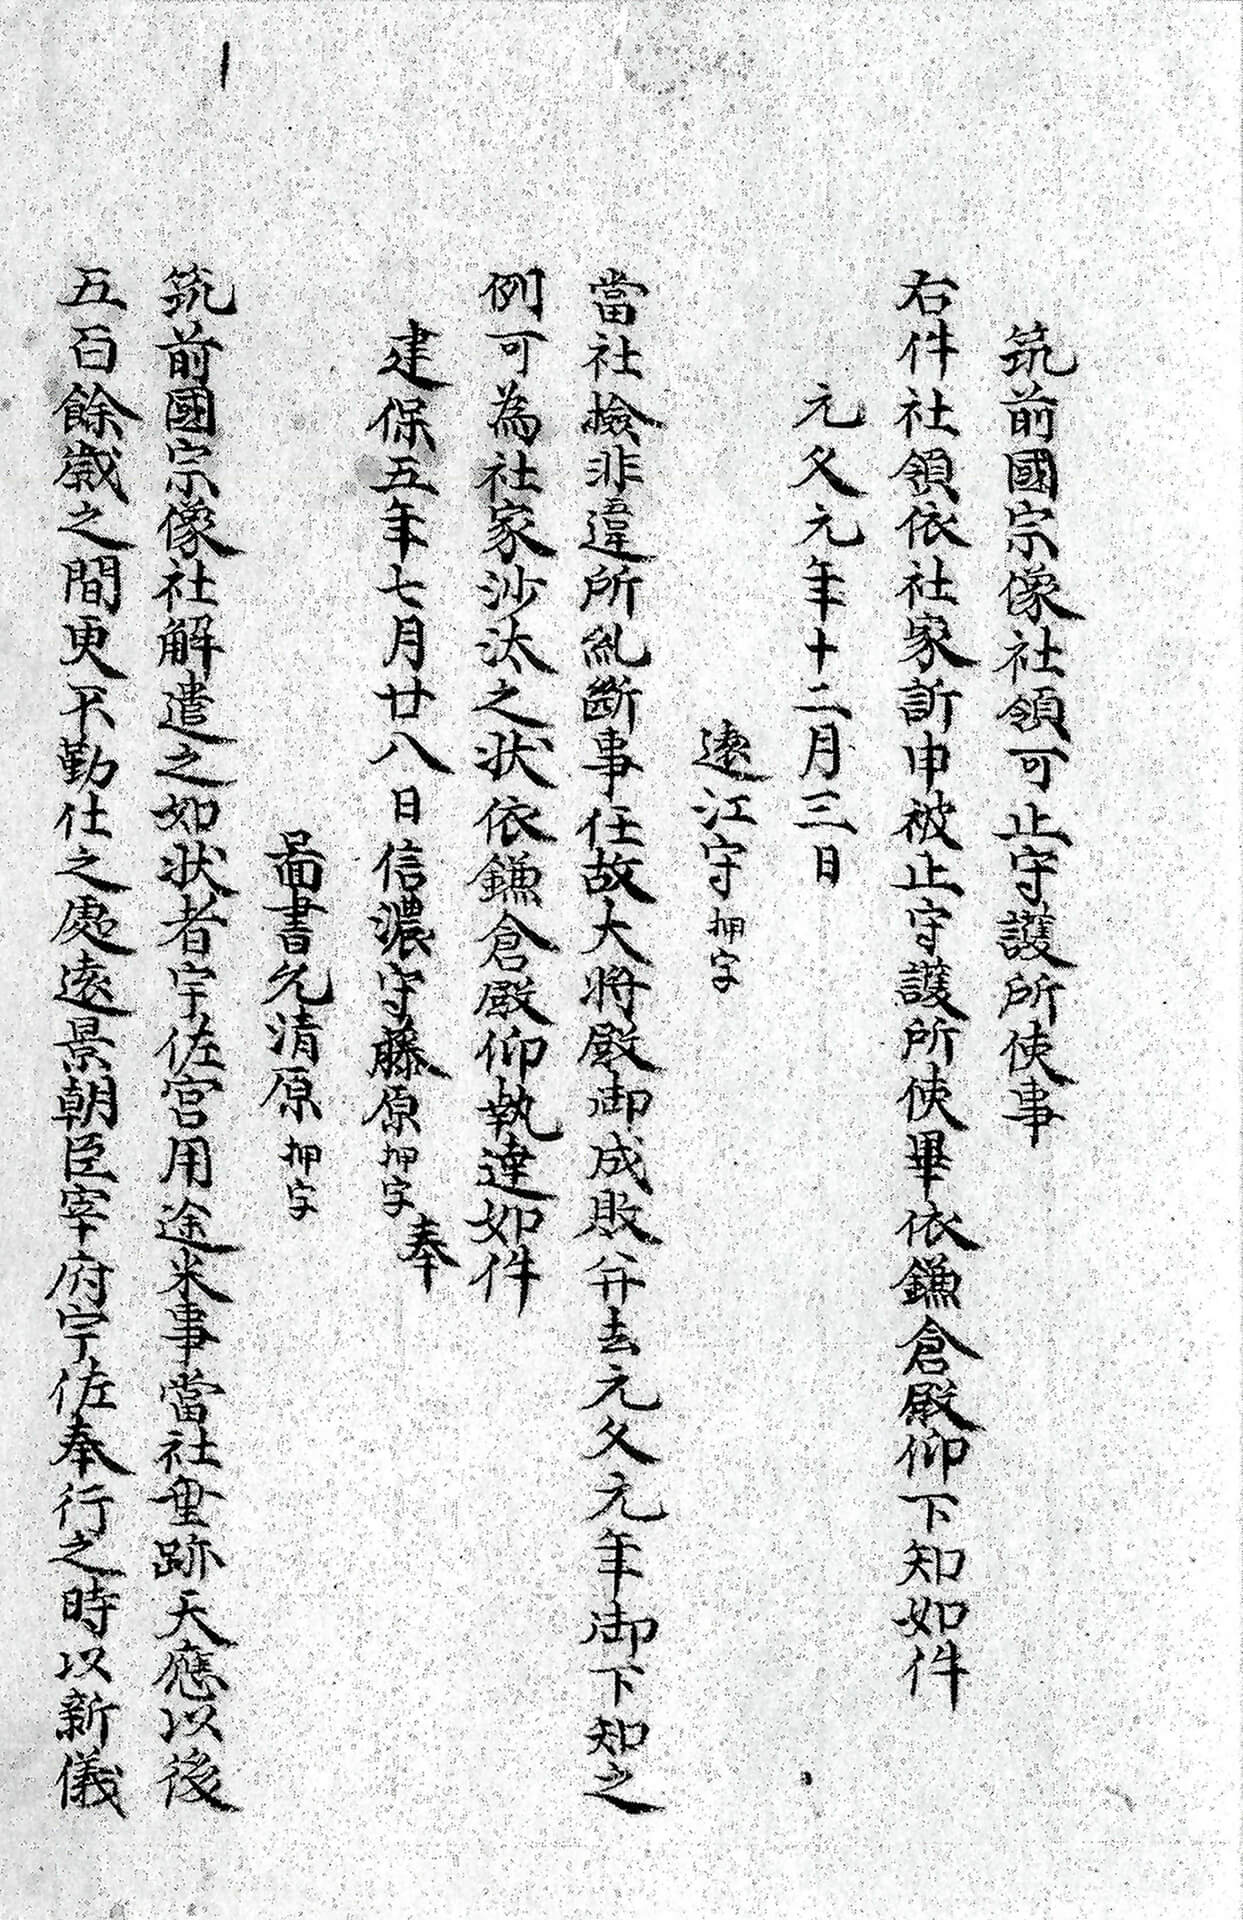 筑前國宗像社領可止守護所使事
右件社領依社家訴申被止守護所使畢依鎌倉殿仰下知如件
元久元年十二月三日
遠江守押字
當社撿非違所糺断事任故大将殿御成敗并去元久元年御下知之
例可為社家沙汰之状依鎌倉殿仰執達如件
建保五年七月廿八日信濃守藤原押字奉
圖書允清原押字
筑前國宗像社解遣之如状者宇佐宮用途米事當社垂跡天應以後
五百餘歳之間更不勤仕之處遠景朝臣宰府宇佐奉行之時以新儀